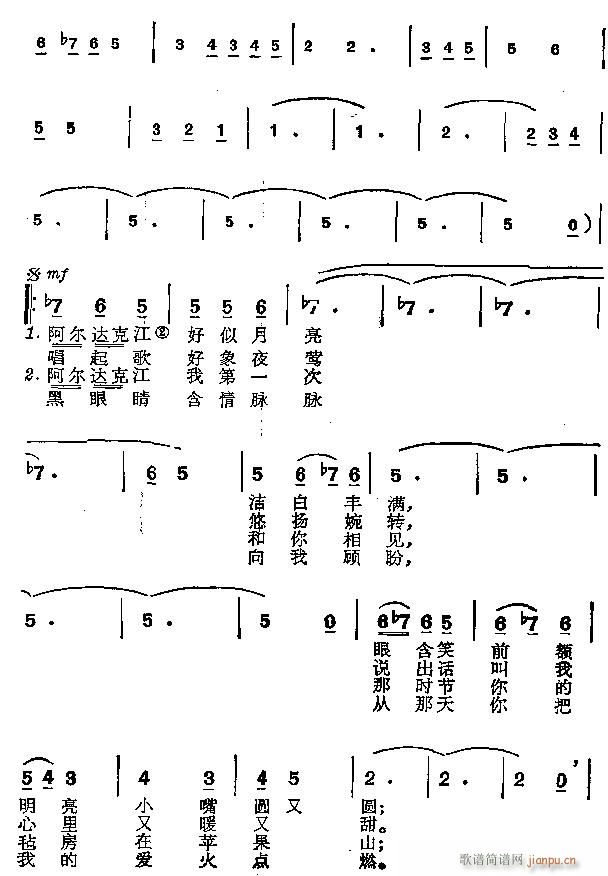 6 ♭7 6 5 | 3 4 3 4 5 | 2 2 . | 3 4 5 | 5 6 |
5 5 | 3 2 1 | 1 . | 1 . | 2 . | 2 3 4 |
5 . | 5 . | 5 . | 5 . | 5 . | 5 0 )
𝄋 mf
‖: ♭7 6 5 | 5 5 6 | ♭7 . | ♭7 . | ♭7 .
1. 阿尔达克江② 好似月亮
唱起歌好象夜莺
2. 阿尔达克江 我第一次
黑眼睛含情脉脉
♭7 . | 6 5 | 5 6 ♭7 6 | 5 . | 5 .
洁白丰满,
悠扬婉转,
和你相见,
向我顾盼,
5 . | 5 . | 5 0 | 6 ♭7 6 5 | 6 ♭7 6
眼含笑前额
说出话叫我
那时节你的
从那天你把
5 4 3 | 4 3 | 4 5 | 2 . | 2 . | 2 0 ’
明亮小嘴圆又圆;
心里又暖又甜。
毡房在苹果山;
我的爱火点燃。
歌谱简谱网 jianpu.cn